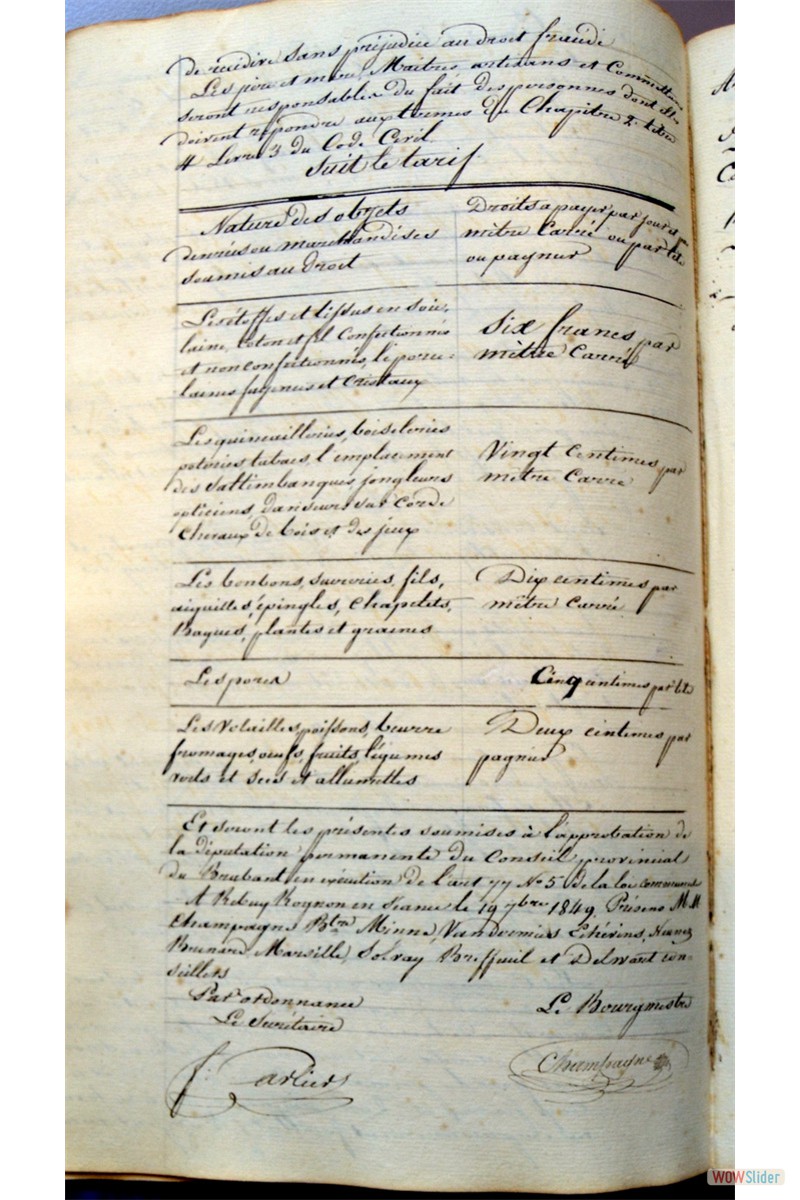 de récidive sans préjudice au droit fraudé
Les père et mère, Maitres artisans et Commettans
seront responsables du fait des personnes dont ils
doivent répondre aux termes du Chapitre 2 titre
4 Livre 3 du Code Civil.
Suit le tarif.
Nature des objets
denrées ou marchandises
soumis au droit
Droits a payer par jour et
mètre Carré ou par tête
ou pagnier
Les étoffes et tissus en soie,
laine, coton et fil Confectionnés
et non confectionnés, les porce-
laines fayences et Cristaux
Six francs par
mètre Carré
Les quincailleries, boiseleries
poteries tabacs, l'emplacement
des saltimbanques, jongleurs
opticiens, danseurs sur Corde
Chevaux de bois et des jeux
Vingt Centimes par
mètre Carré
Les bonbons, sucreries, fils,
aiguilles, épingles, Chapelets,
Bagues, plantes et graines
Dix centimes par
mètre Carré
Les porcs
Cinq centimes par tête
Les Volailles, poissons, beurre
fromages, oeufs, fruits, légumes
verts et secs et allumettes
Deux centimes par
pagnier
Et seront les présentes soumises à l'approbation de
la députation permanente du Conseil provincial
du Brabant en exécution de l'art 77 No 5 de la loi communale
A Rebecq Rognon en séance le 19 7bre 1849. Présens M.M
Champagne Btre Minne, Vandormies Echévins,
Marseille, et Delwart con-
seillers
Par ordonnance
Le Secrétaire
Le Bourgmestre
Champagne
WOWSlider